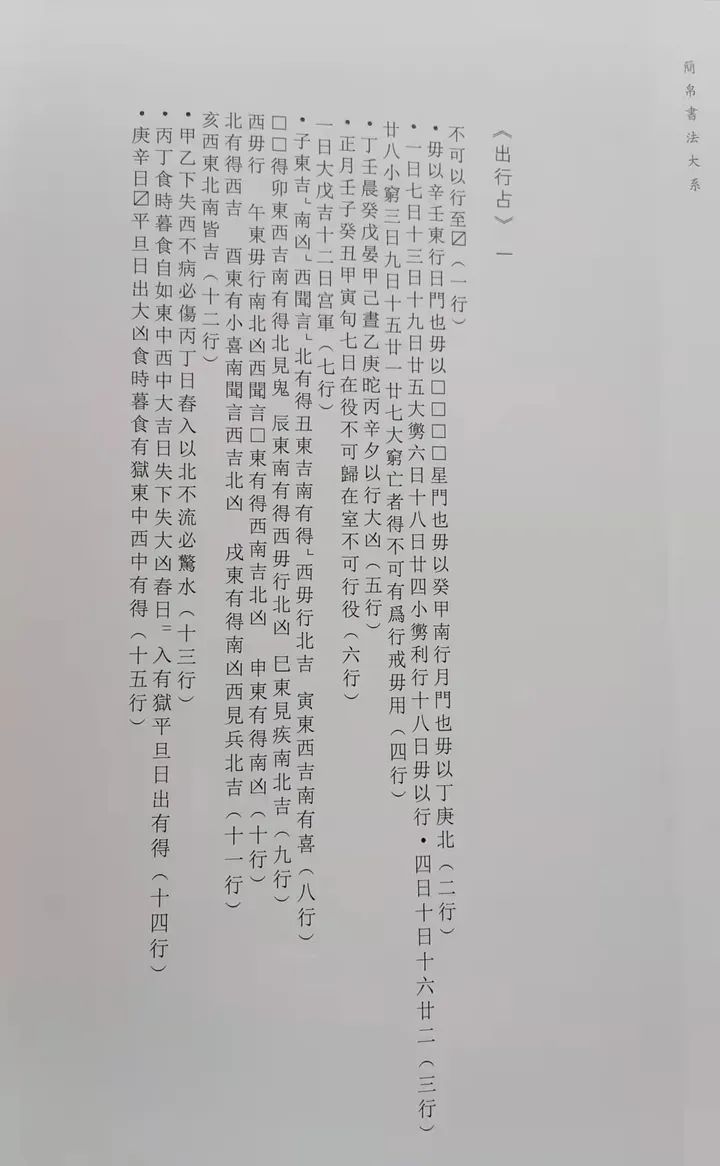 簡帛書法大系
《出行占》一
不可以行至〼（一行）
•毋以辛壬東行日門也毋以□□□□星門也毋以癸甲南行月門也毋以丁庚北（二行）
•一日七日十三日十九日廿五大勶六日十八日廿四小勶利行十八日毋以行•四日十日十六廿二（三行）
廿八小窮三日九日十五廿一廿七大窮亡者得不可有爲行戒毋用（四行）
•丁壬晨癸戊晏甲己晝乙庚㫊丙辛夕以行大凶（五行）
•正月壬子癸丑甲寅旬七日在役不可歸在室不可行役（六行）
一日大戊吉十二日宫軍（七行）
•子東吉﹂南凶﹂西聞言﹂北有得丑東吉南有得﹂西毋行北吉　寅東西吉南有喜（八行）
□□得卯東西吉南有得北見鬼　辰東南有得西毋行北凶　巳東見疾南北吉（九行）
西毋行　午東毋行南北凶西聞言□東有得西南吉北凶　申東有得南凶（十行）
北有得西吉　酉東有小喜南聞言西吉北凶　戌東有得南凶西見兵北吉（十一行）
亥西東北南皆吉（十二行）
•甲乙下失西不病必傷丙丁日舂入以北不流必驚水（十三行）
•丙丁食時暮食自如東中西中大吉日失下失大凶舂日＝入有獄平旦日出有得（十四行）
•庚辛日〼平旦日出大凶食時暮食有獄東中西中有得（十五行）